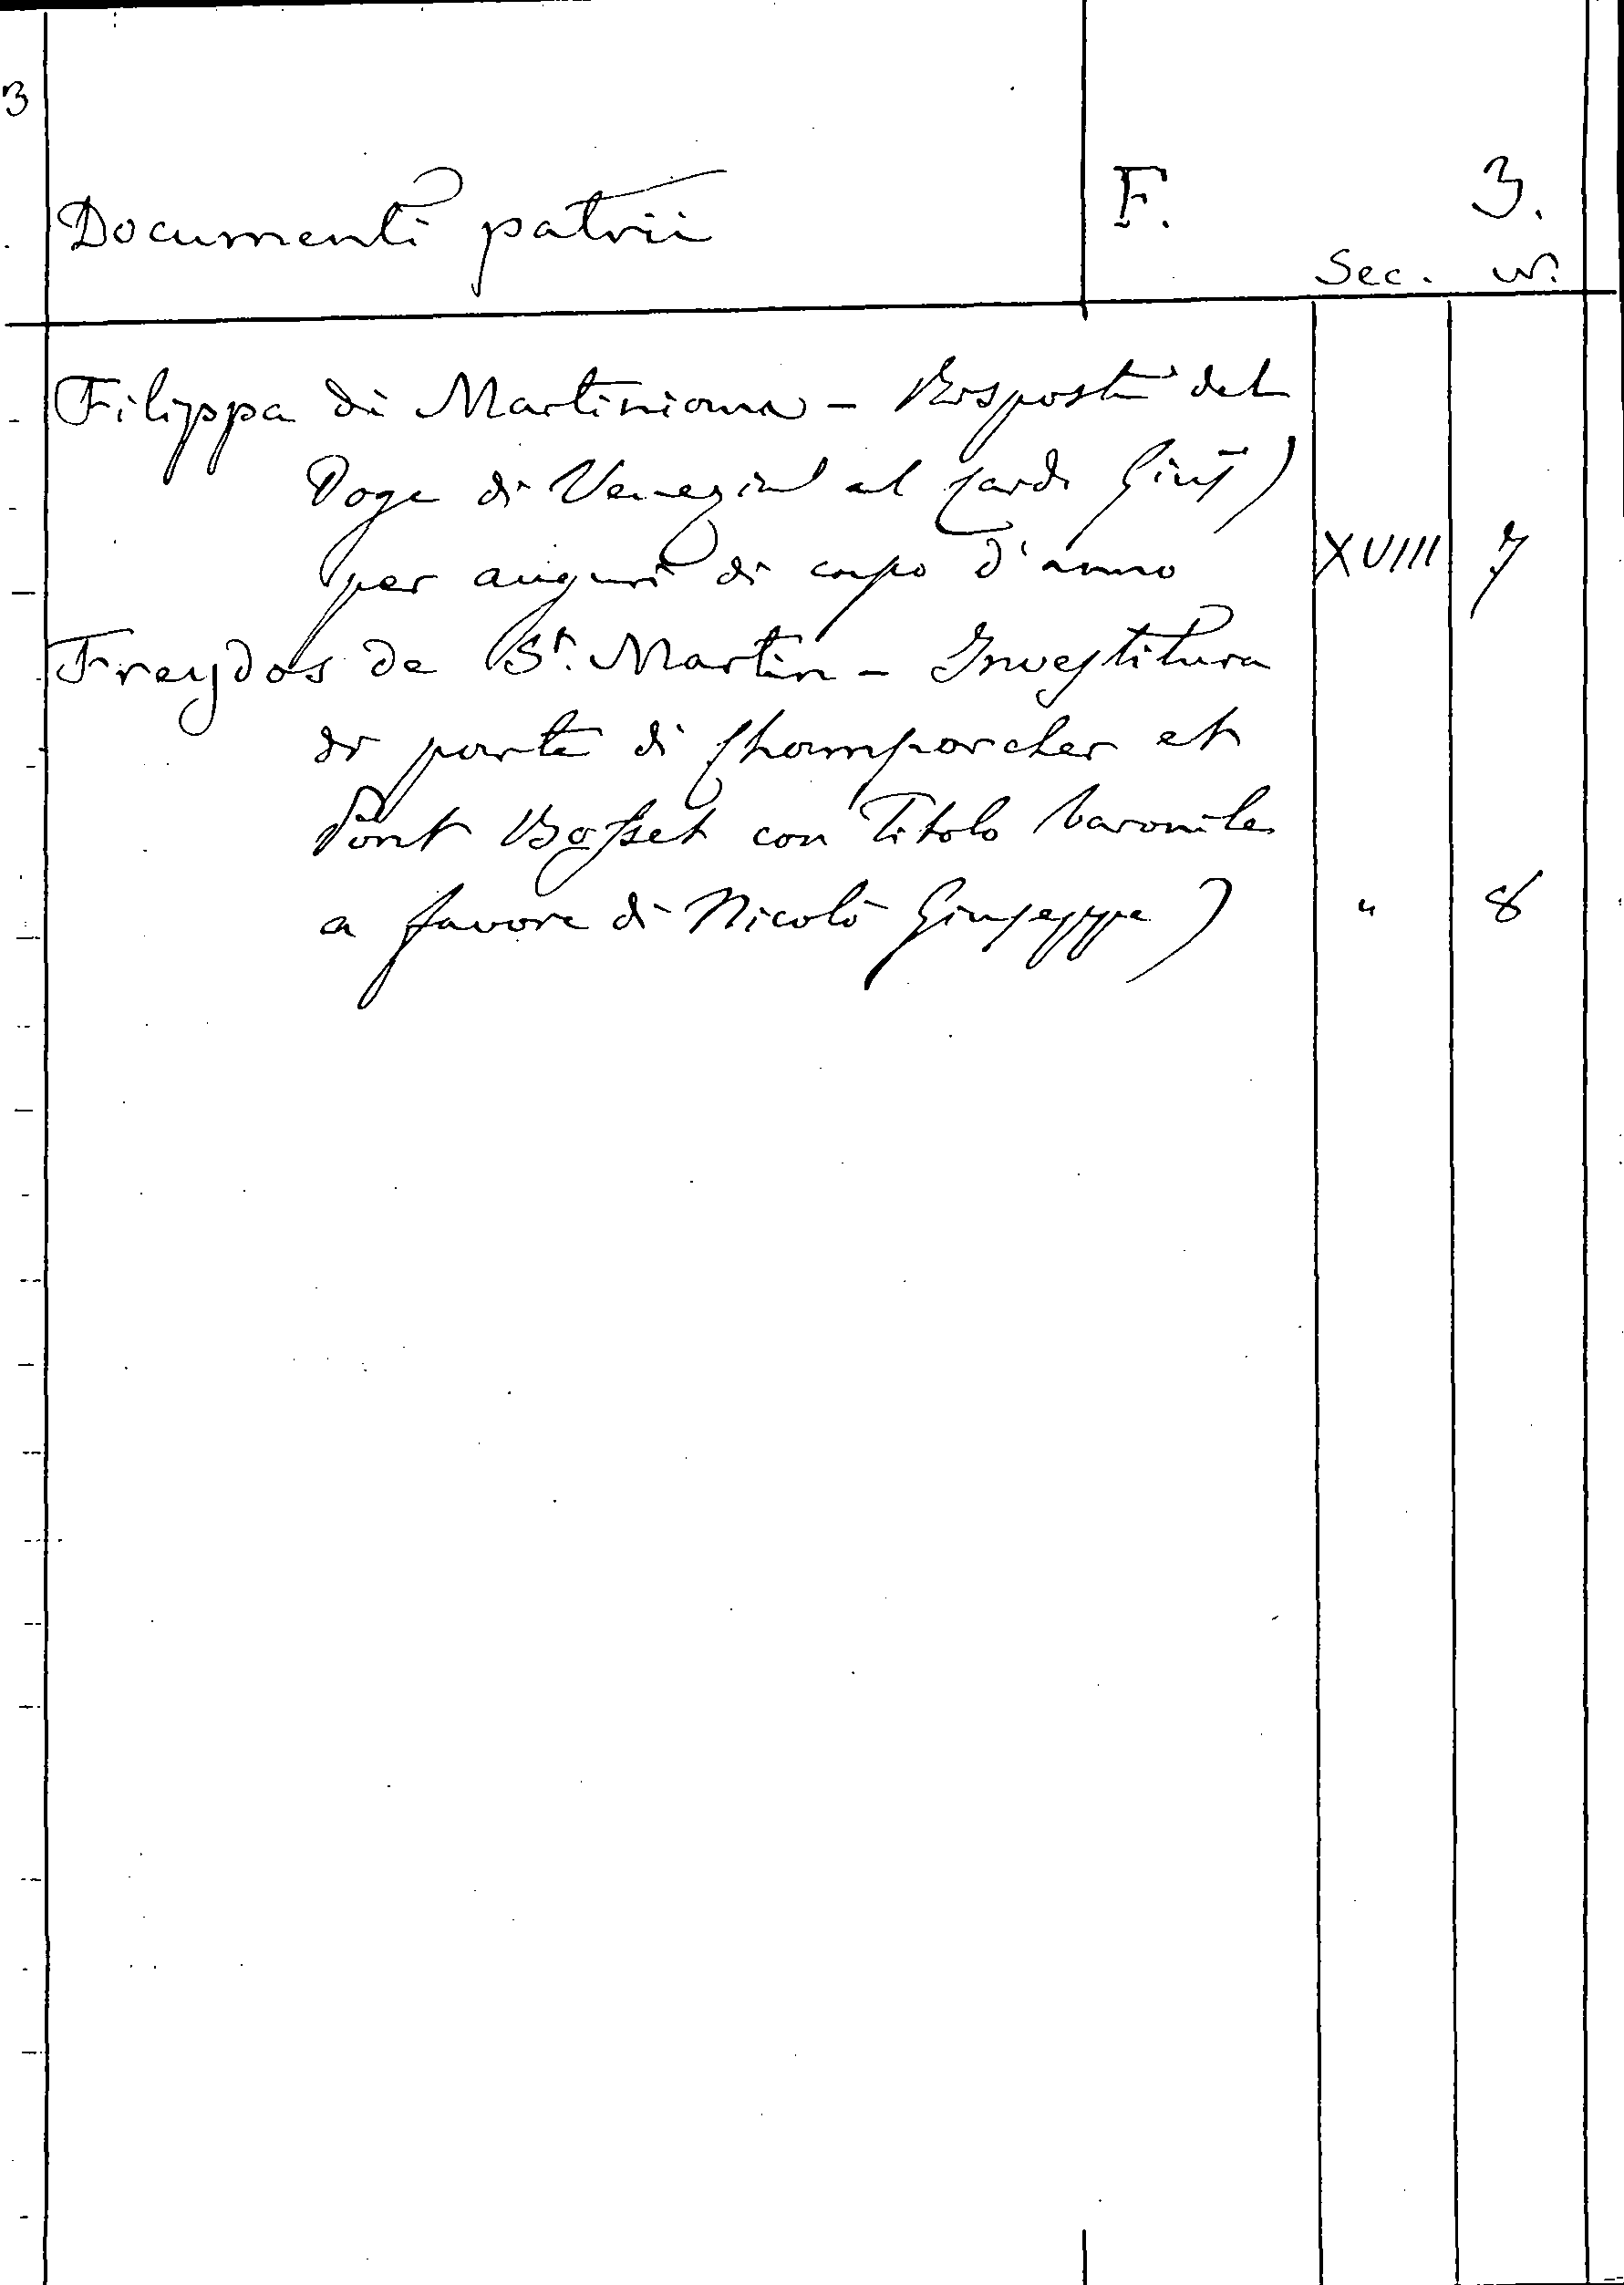 3
Documenti patrii F. 3.
Sec. n.
Filippa di Martiniana - Risposta del
Doge di Venezia al Card. Gius.)
per auguri di capo d'anno XVIII 7
Freydos de St. Martin - Investitura
di parte di Champorcher et
Pont Bosset con Titolo baronile
a favore di Nicolò Giuseppe) " 8